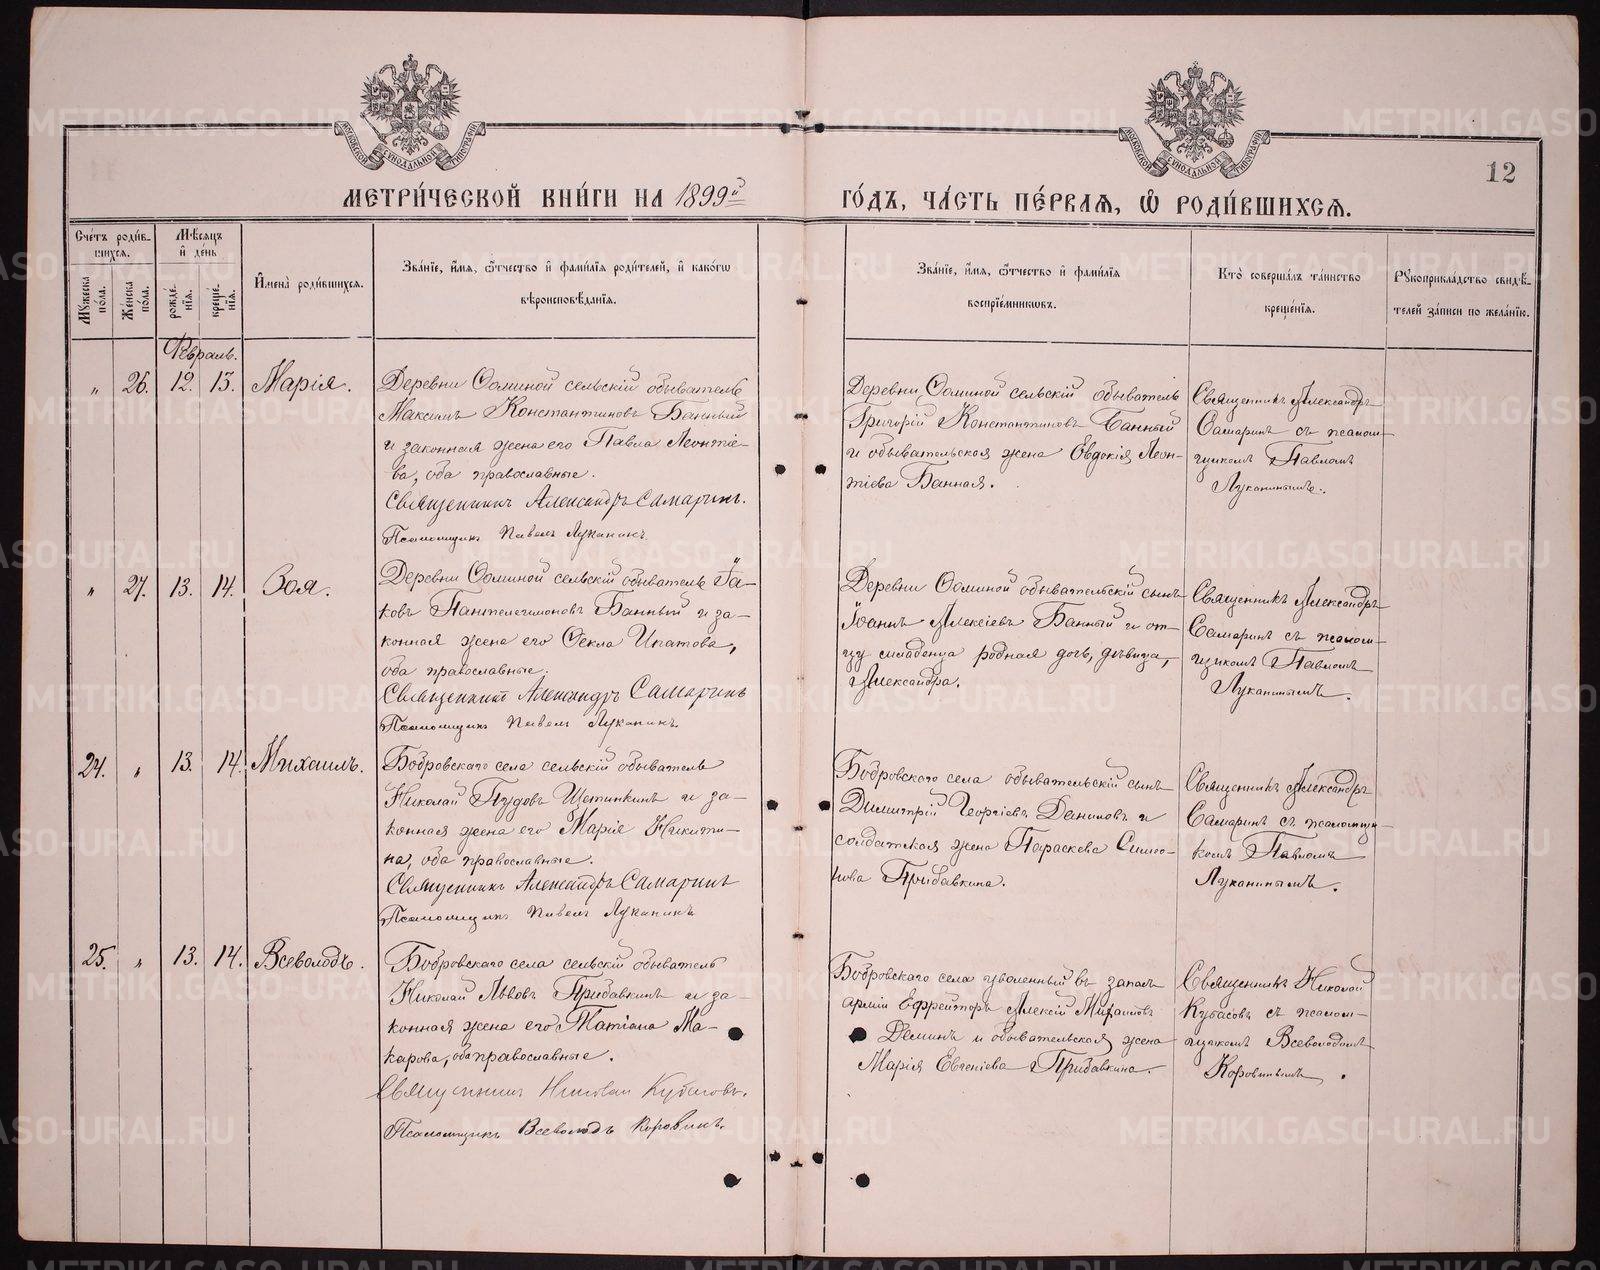 12
МЕТРИ́ЧЕСКОЙ КНИ́ГИ НА 1899й
ГО́ДЪ, ЧА́СТЬ ПЕ́РВАѦ, Ѡ҆ РОДИ́ВШИХСѦ.
Сче́тъ роди́в-
шихся.
Мꙋ́жеска пола.
Же́нска пола.
Мѣ́сяцъ и҆ де́нь
рожде́-
нїя.
креще́-
нїя.
И҆мена̀ роди́вшихся.
Зва́нїе, и҆́мя, ѻ҆́тчество и҆ фами́лїя роди́телей, и҆ како́гѡ
вѣроисповѣ́данїя.
Зва́нїе, и҆́мя, ѻ҆́тчество и҆ фами́лїя
воспрїе́мникѡвъ.
Кто̀ соверша́лъ та́инство
креще́нїя.
Рꙋкоприкла́дство свидѣ́-
телей за́писи по жела́нїю.
Февраль.
" 26. 12. 13. Марія.
Деревни Ѳоминой сельскій обыватель
Максимъ Константиновъ Банный
и законная жена его Павла Леонтіе-
ва, оба православные.
Священникъ Александръ Самаринъ.
Псаломщикъ Павелъ Луканинъ.
Деревни Ѳоминой сельскій обыватель
Григорій Константиновъ Банный
и обывательская жена Евдокія Леон-
тіева Банная.
Священникъ Александръ
Самаринъ съ псалом-
щикомъ Павломъ
Луканинымъ.
" 27. 13. 14. Зоя.
Деревни Ѳоминой сельскій обыватель Іа-
ковъ Пантелеимоновъ Банный и за-
конная жена его Ѳекла Ипатова,
оба православные.
Священникъ Александръ Самаринъ
Псаломщикъ Павелъ Луканинъ.
Деревни Ѳоминой обывательскій сынъ
Іоаннъ Алексіевъ Банный и от-
цу младенца родная дочь, дѣвица,
Александра.
Священникъ Александръ
Самаринъ съ псалом-
щикомъ Павломъ
Луканинымъ.
24. " 13. 14. Михаилъ.
Бобровскаго села сельскій обыватель
Николай Пудовъ Щетинкинъ и за-
конная жена его Марія Никити-
на, оба православные.
Священникъ Александръ Самаринъ
Псаломщикъ Павелъ Луканинъ
Бобровскаго села обывательскій сынъ
Димитрій Георгіевъ Даниловъ и
солдатская жена Параскева Симео-
нова Прибавкина.
Священникъ Александръ
Самаринъ съ псаломщи-
комъ Павломъ
Луканинымъ.
25. " 13. 14. Всеволодъ.
Бобровскаго села сельскій обыватель
Николай Львовъ Прибавкинъ и за-
конная жена его Татіана Ма-
карова, оба православные.
Священникъ Николай Кубасовъ.
Псаломщикъ Всеволодъ Коровинъ.
Бобровскаго села уволенный въ запасъ
арміи Ефрейторъ Алексій Михаиловъ
Деминъ и обывательская жена
Марія Евгеніева Прибавкина.
Священникъ Николай
Кубасовъ съ псалом-
щикомъ Всеволодомъ
Коровинымъ.
METRIKI.GASO-URAL.RU